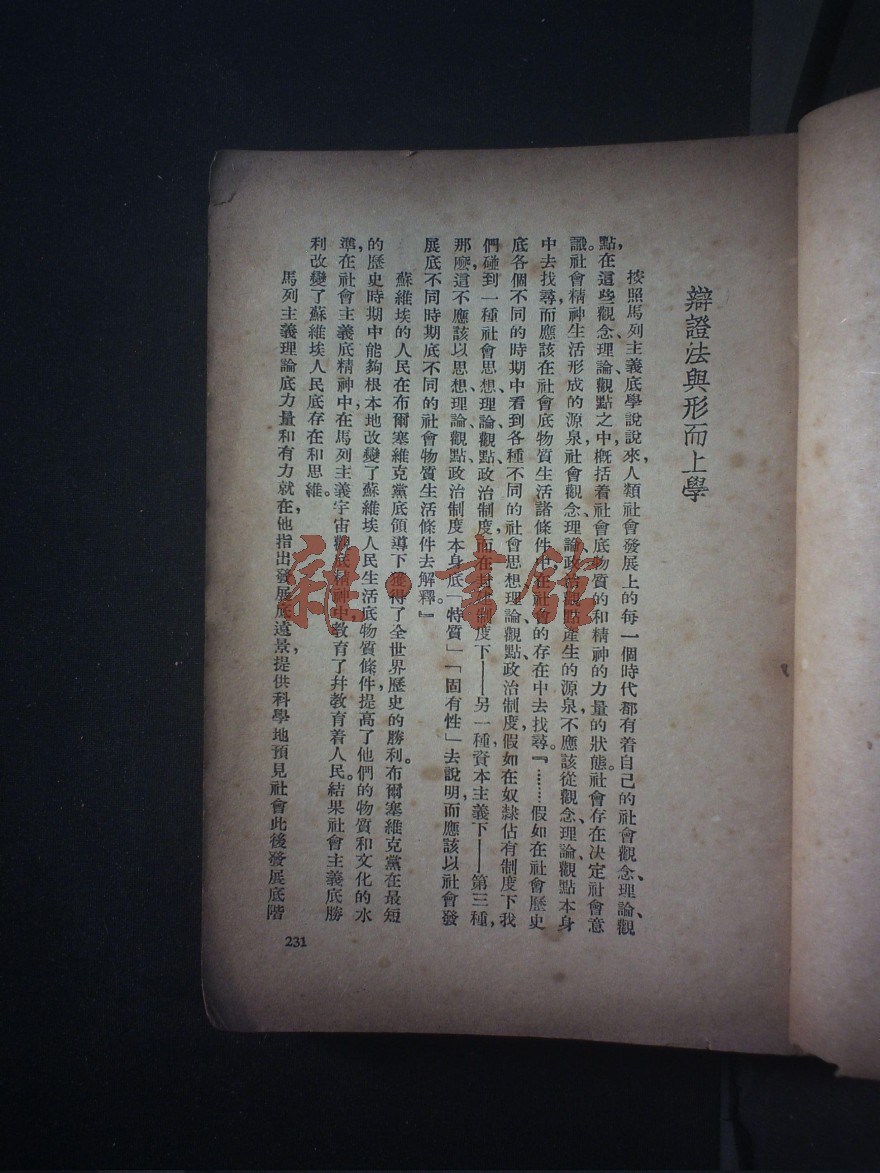 辯證法與形而上學
按照馬列主義底學說說來，人類社會發展上的每一個時代都有着自己的社會觀念、理論、觀
點，在這些觀念、理論、觀點之中，概括着社會底物質的和精神的力量的狀態。社會存在決定社會意
識。社會精神生活形成的源泉，社會觀念、理論、政治觀點產生的源泉，不應該從觀念、理論、觀點本身
中去找尋，而應該在社會底物質生活諸條件中，在社會的存在中去找尋。『………假如在社會歷史
底各個不同的時期中看到各種不同的社會思想、理論、觀點、政治制度，假如在奴隸佔有制度下我
們碰到一種社會思想、理論、觀點、政治制度，而在封建制度下——另一種，資本主義下——第三種，
那麼，這不應該以思想、理論、觀點、政治制度本身底「特質」「固有性」去說明，而應該以社會發
展底不同時期底不同的社會物質生活條件去解釋。』
蘇維埃的人民在布爾塞維克黨底領導下獲得了全世界歷史的勝利。布爾塞維克黨在最短
的歷史時期中能夠根本地改變了蘇維埃人民生活底物質條件，提高了他們的物質和文化的水
準，在社會主義底精神中，在馬列主義宇宙觀底精神中教育了幷教育着人民。結果社會主義底勝
利改變了蘇維埃人民底存在和思維。
馬列主義理論底力量和有力就在，他指出發展底遠景，提供科學地預見社會此後發展底階
231
雜·書館